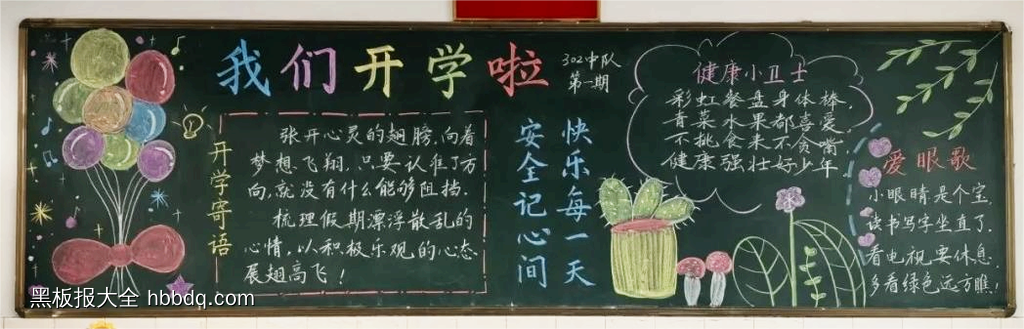 我们开学啦
302中队
第一期
开学寄语
张开心灵的翅膀,向着
梦想飞翔,只要认准了方
向,就没有什么能够阻挡.
梳理假期漂浮散乱的
心情,以积极乐观的心态.
展翅高飞!
快乐每一天
安全记心间
健康小卫士
彩虹餐盘身体棒,
青菜水果都喜爱,
不挑食来不贪嘴
健康强壮好少年
爱眼歌
小眼睛是个宝,
读书写字坐直了.
看电视,要休息.
多看绿色远方瞧!
黑板报大全 hbbdq.com